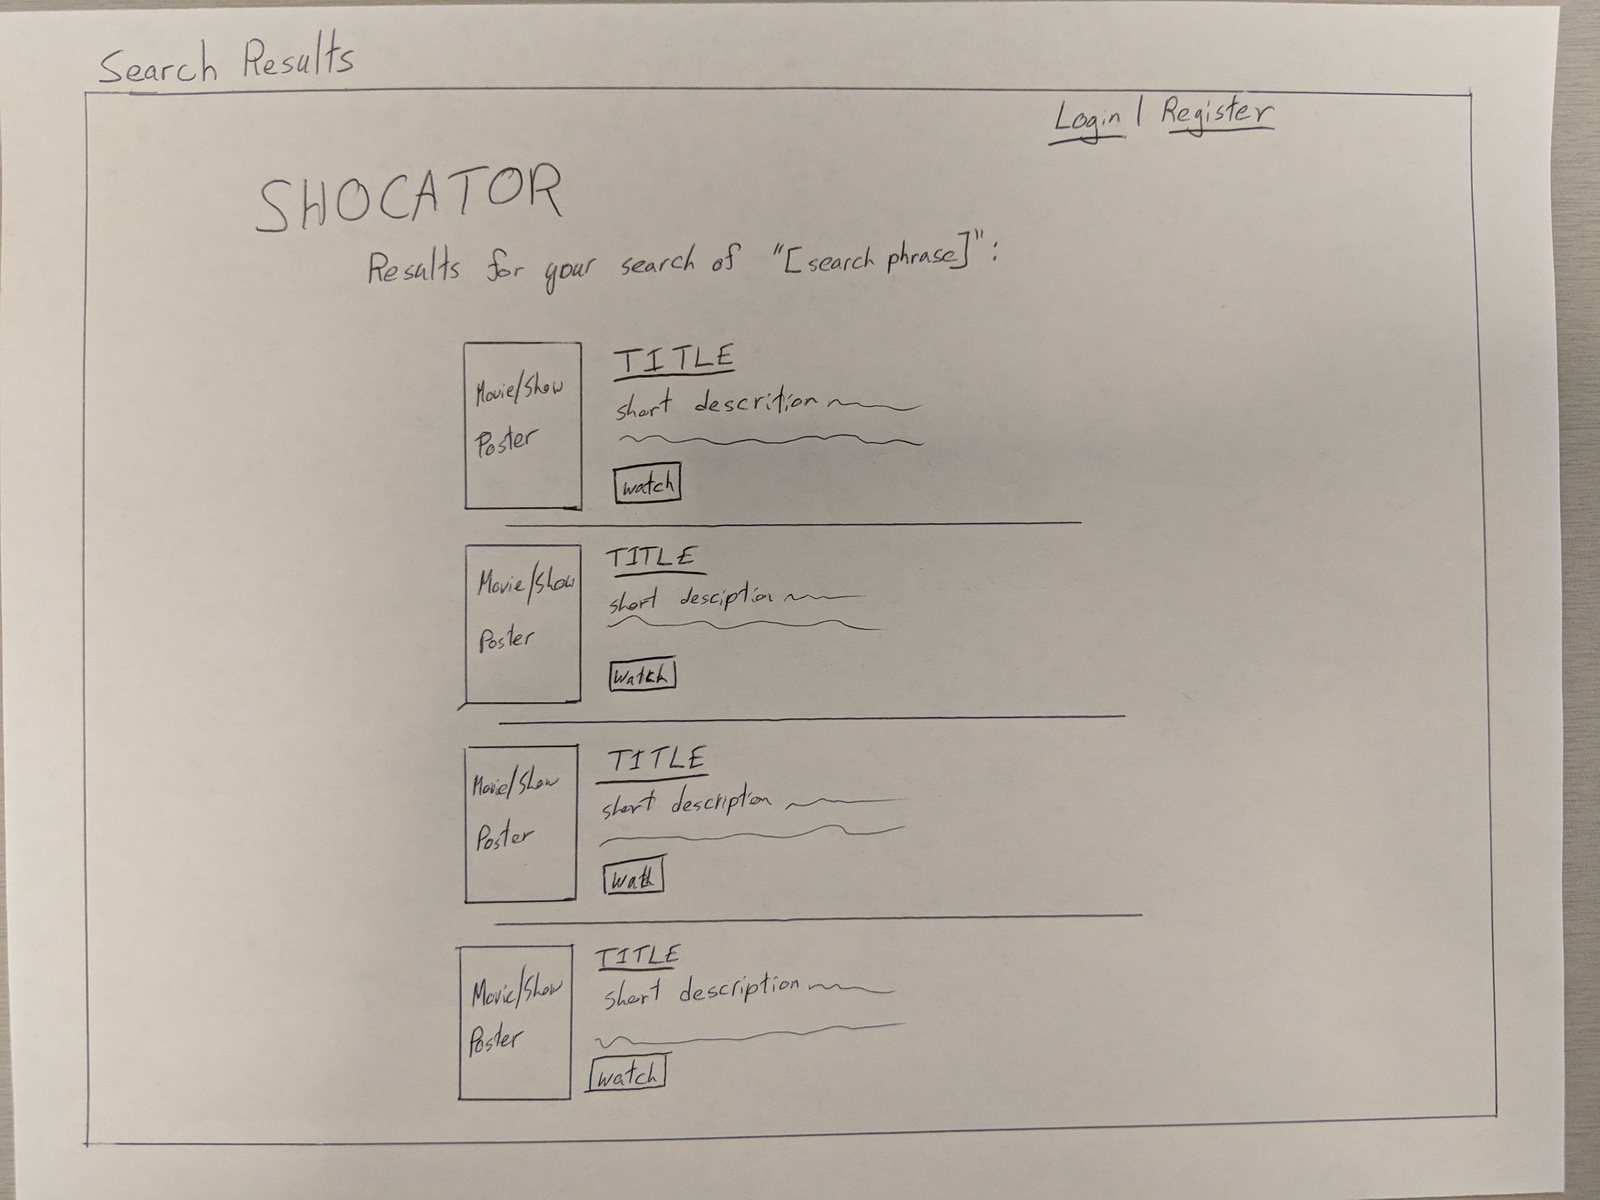 Search Results
Login | Register
SHOCATOR
Results for your search of "[search phrase]":
Movie/Show
Poster
TITLE
short descrition
watch
Movie/Show
Poster
TITLE
short desciption
watch
Movie/Show
Poster
TITLE
short description
watch
Movie/Show
Poster
TITLE
short description
watch